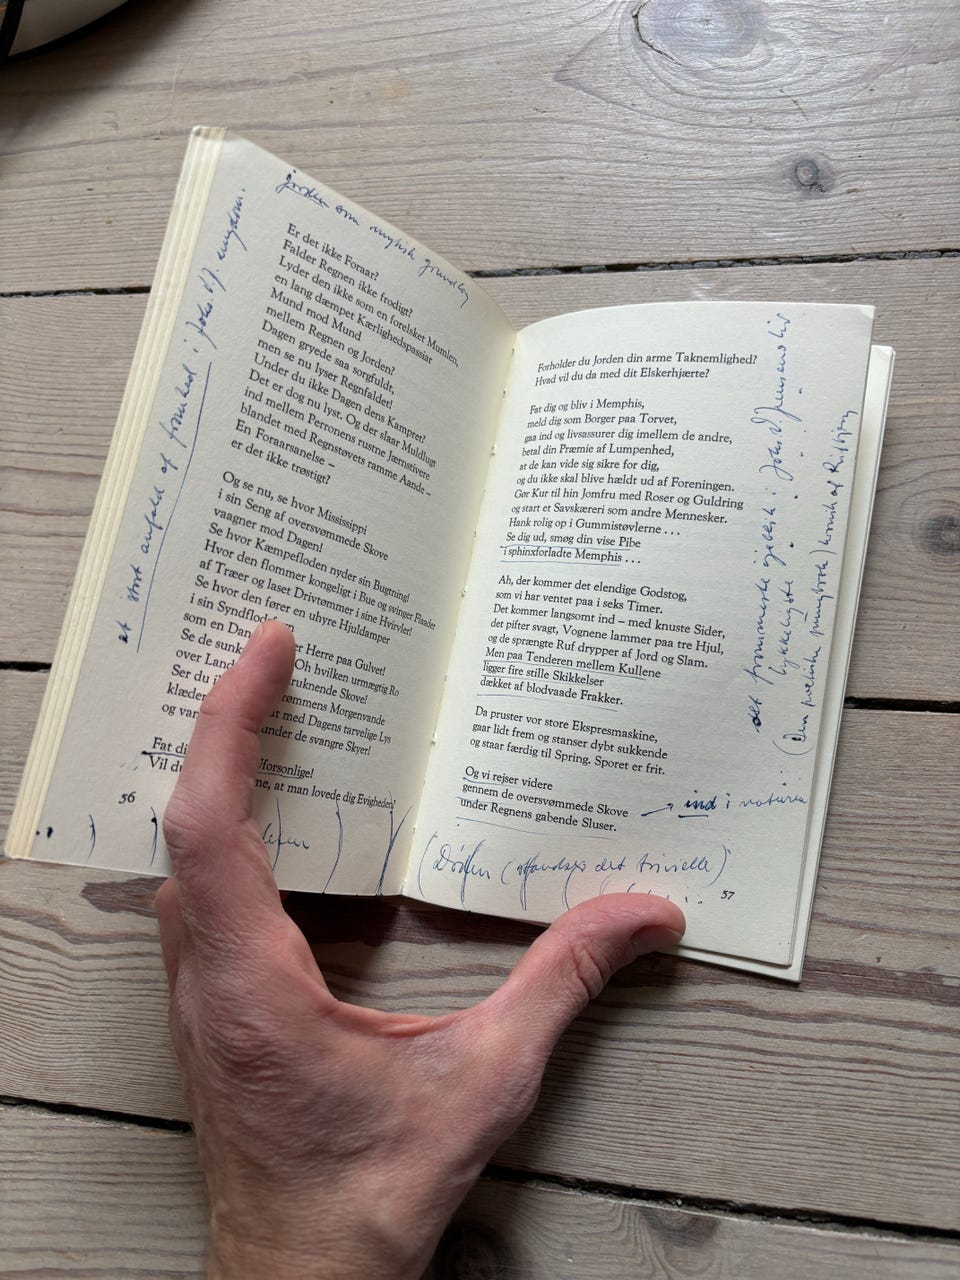 jorden som mytisk grundlag
et stort anfald af fromhed i Johs. V J ungdom.
Er det ikke Foraar?
Falder Regnen ikke frodigt?
Lyder den ikke som en forelsket Mumlen,
en lang dæmpet Kærlighedspassiar
Mund mod Mund
mellem Regnen og Jorden?
Dagen gryede saa sorgfuldt,
men se nu lyser Regnfaldet!
Under du ikke Dagen dens Kampret?
Det er dog nu lyst. Og der slaar Muldlugt
ind mellem Perronens rustne Jærnstivere
blandet med Regnstøvets ramme Aande –
En Foraarsanelse –
er det ikke trøstigt?
Og se nu, se hvor Mississippi
i sin Seng af oversvømmede Skove
vaagner mod Dagen!
Se hvor Kæmpefloden nyder sin Bugtning!
Hvor den flommer kongeligt i Bue og svinger Flaader
af Træer og laset Drivtømmer i sine Hvirvler!
Se hvor den fører en uhyre Hjuldamper
i sin
som en Herre paa Gulvet!
Se de Oh hvilken urmægtig Ro
over druknende Skove!
Ser du Morgenvande
klæder med Dagens tarvelige Lys
og under de svangre Skyer!
Fat Uforsonlige!
Vil at man lovede dig Evigheden?
56
Forholder du Jorden din arme Taknemlighed?
Hvad vil du da med dit Elskerhjærte?
Fat dig og bliv i Memphis,
meld dig som Borger paa Torvet,
gaa ind og livsassurer dig imellem de andre,
betal din Præmie af Lumpenhed,
at de kan vide sig sikre for dig,
og du ikke skal blive hældt ud af Foreningen.
Gør Kur til hin Jomfru med Roser og Guldring
og start et Savskæreri som andre Mennesker.
Hank rolig op i Gummistøvlerne . . .
Se dig ud, smøg din vise Pibe
i sphinxforladte Memphis . . .
Ah, der kommer det elendige Godstog,
som vi har ventet paa i seks Timer.
Det kommer langsomt ind – med knuste Sider,
det pifter svagt, Vognene lammer paa tre Hjul,
og de sprængte Ruf drypper af Jord og Slam.
Men paa Tenderen mellem Kullene
ligger fire stille Skikkelser
dækket af blodvaade Frakker.
Da pruster vor store Ekspresmaskine,
gaar lidt frem og stanser dybt sukkende
og staar færdig til Spring. Sporet er frit.
Og vi rejser videre
gennem de oversvømmede Skove
under Regnens gabende Sluser.
→ ind i naturen
(Døden (det trivielle)
57
det frommeste øjeblik i Johs. V Jensens liv
lykkeligste
(Den poetiske af Rifbjerg